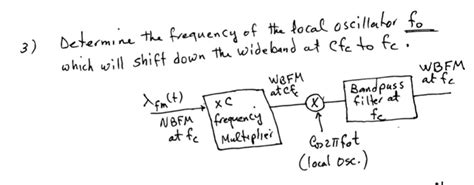 3) Determine the frequency of the local oscillator fo
which will shift down the wideband at Cfc to fc.
λfm(t)
NBFM
at fc
xC
frequency
Multiplier
WBFM
at Cfc
X
Cos2πfot
(local osc.)
Bandpass
filter at
fc
WBFM
at fc